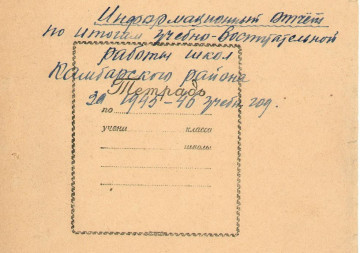 Информационный отчёт
по итогам учебно-воспитательной
работы школ
Камбарского района
Тетрадь
за 1945-46 учебн. год.
по
учени класса
школы